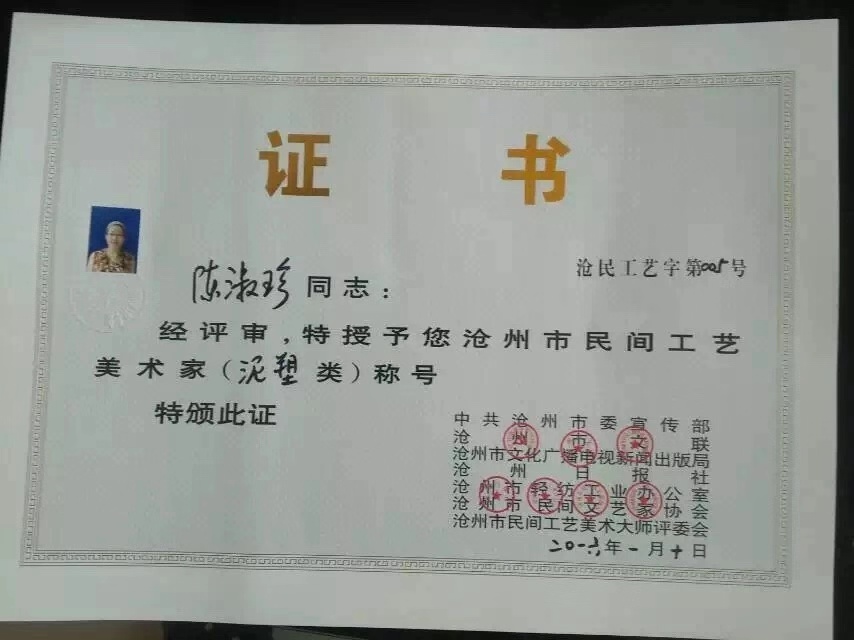 证 书
沧民工艺字第005号
陈淑珍同志：
经评审，特授予您沧州市民间工艺
美术家（泥塑类）称号
特颁此证
中共沧州市委宣传部
沧州市文联
沧州市文化广播电视新闻出版局
沧州日报社
沧州市轻纺工业办公室
沧州市民间文艺家协会
沧州市民间工艺美术大师评委会
二〇一六年一月十日